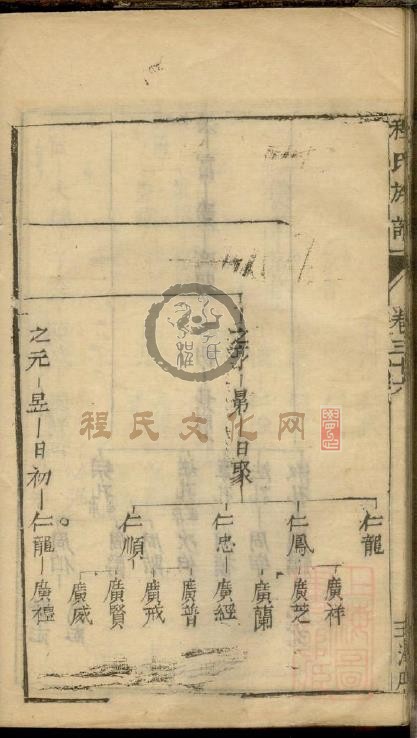 程氏族譜
卷三十六
之
昺
日聚
仁龍
仁鳳
廣祥
廣芝
廣蘭
仁忠
廣經
廣普
仁順
廣戒
廣賢
廣威
之元
昱
日初
仁龍
廣禋
程氏文化网